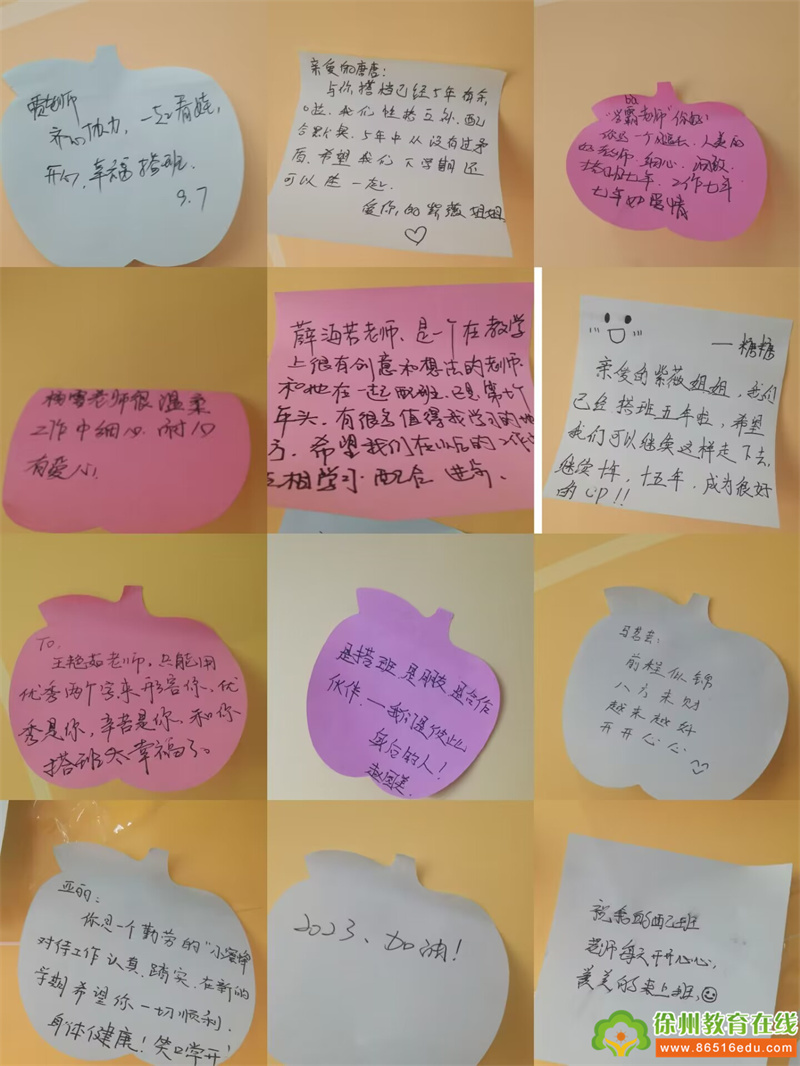 贾老师
齐心协力,一起看娃,
开心,幸福搭班.
9.7
亲爱的唐唐:
与你搭档已经5年有余
啦,我们性格互补,配
合默契。5年中从没有过矛
盾,希望我们下学期还
可以在一起.
爱你的紫薇姐姐
"学霸老师"你好!
你是一个人美的
好老师,细心
搭班七年,工作七年
七年如爱情
杨雪老师很温柔
工作中细心.耐心
有爱心.
薛海芳老师、是一个在教学
上很有创意和想法的老师.
和她在一起配班.已是第七个
年头.有很多值得我学习的地
方.希望我们在以后的工作中
互相学习.配合 进步.
—糖糖
亲爱的紫薇姐姐,我们
已经搭班五年啦,希望
我们可以继续这样走下去,
继续十年,十五年,成为很好
的CP!!
To.
王艳茹老师,只能用
优秀两个字来形容你,优
秀是你,辛苦是你,和你
搭班太幸福了。
是搭班,是朋友,是合作
伙伴.——我们是彼此
身后的人!
前程似锦
八方来财
越来越好
开开心心
亚丽:
你是一个勤劳的"小蜜蜂
对待工作认真、踏实.在新的
学期希望你一切顺利,
身体健康!笑口常开!
2023、加油!
祝亲爱的配班
老师每天开开心心,
美美的来上班,
徐州教育在线
www.86516edu.com